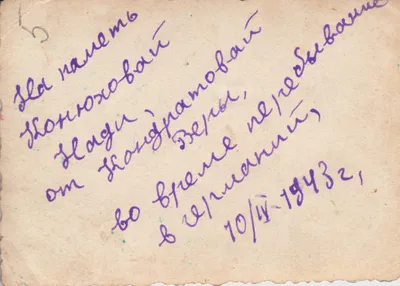 5
На память
Конюховай
Нади,
от Кондратовай
Веры,
во време пересывание
в германий,
10/IV-1943 г,